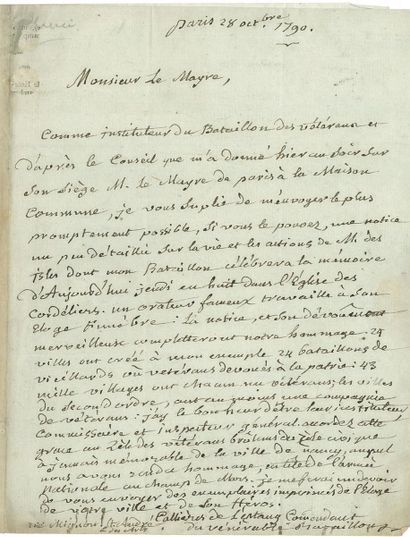 paris 28 octbre 1790.
Monsieur Le Mayre,
Comme instituteur du Bataillon des Vétérans et
d'après le Conseil que m'a donné hier au Soir Sur
Son Siège M. le Mayre de paris à la Maison
Commune, je vous Suplie de m'envoyer le plus
promptement possible, Si vous le pouvez, une notice
un peu détaillée Sur la vie et les actions de M. des
isles dont mon Bataillon célébrera la mémoire
d'Aujourd'hui jeudi en huit dans l'Eglise des
Cordéliers. un orateur fameux travaille à Son
Eloge funèbre : La notice, et Son dévouement
merveilleux completteront notre hommage : 24
villes ont créé à mon exemple 24 bataillons de
vieillards ou vétérans dévoués à la patrie : 43
mille villages ont chacun un vétéran ; les villes
du Second ordre, ont au moins une compagnie
de vétérans : j'ay le bonheur d'être leur instituteur
Commissaire et inspecteur général. accordés cette
grace au Zèle des vétérans
à jamais mémorable de la ville de nancy, auquel
nous avons rendu hommage, en tête de l'armée
Nationale au champ de Mars. je me ferai un devoir
de vous envoyer des exemplaires imprimés de l'Eloge
de votre ville et de Son Héros.
Callières de Lestang Comendant
rue Mignon St André du vénérable Bataillon